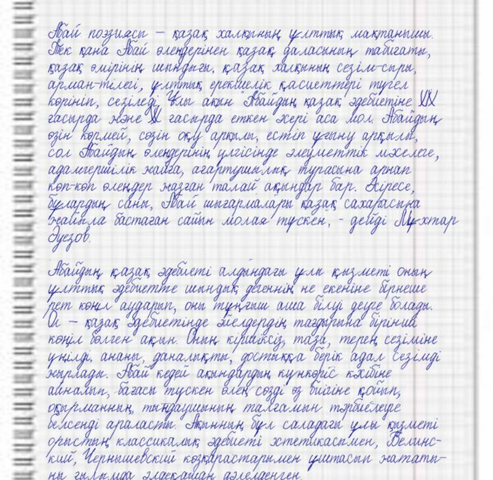 Абай поэзиясы – қазақ халқының ұлттық мақтанышы.
Тек қана Абай өлеңдерінен қазақ даласының табиғаты,
қазақ өмірінің шындығы, қазақ халқының сезім-сыры,
арман-тілегі, ұлттық ерекшелік қасиеттері түгел
көрініп, сезіледі. Ұлы ақын Абайдың қазақ әдебиетіне XIX
ғасырда және XX ғасырда еткен әсері аса мол. Абайдың
өзін көрмей, сөзін оқу арқылы, естіп ұғыну арқылы,
сол Абайдың өлеңдерінің үлгісінде әлеуметтік мәселеге,
адамгершілік жайға, ағартушылық турасына арнап
көп-көп өлеңдер жазған талай ақындар бар. Әсіресе,
бұлардың саны, Абай шығармалары қазақ сахарасына
жайыла бастаған сайын молая түскен, - дейді Мұхтар
Әуезов.
Абайдың қазақ әдебиеті алдындағы ұлы қызметі оның
ұлттық әдебиетте шындық дегеннің не екеніне бірнеше
рет көңіл аударып, оны тұңғыш аша білуі деуге болады.
Ол – қазақ әдебиетінде әйелдердің тағдырына бірінші
көңіл бөлген ақын. Оның кіршіксіз, таза, терең сезіміне
үңілді, ананы, даналықты, достыққа берік адал сезімді
жырлады. Абай кедей ақындардың күнкөріс кәсібіне
айналып, бағасы түскен өлең сөзді өз биігіне қойып,
оқырманның, тыңдаушының талғамын тәрбиелеуде
белсенді араласты. Ақынның бұл саладағы ұлы қызметі
орыстың классикалық әдебиеті эстетикасымен, Белинс-
кий, Чернышевский көзқарастарымен ұштасып жататы-
ны ғылымда әлдеқашан дәлелденген.